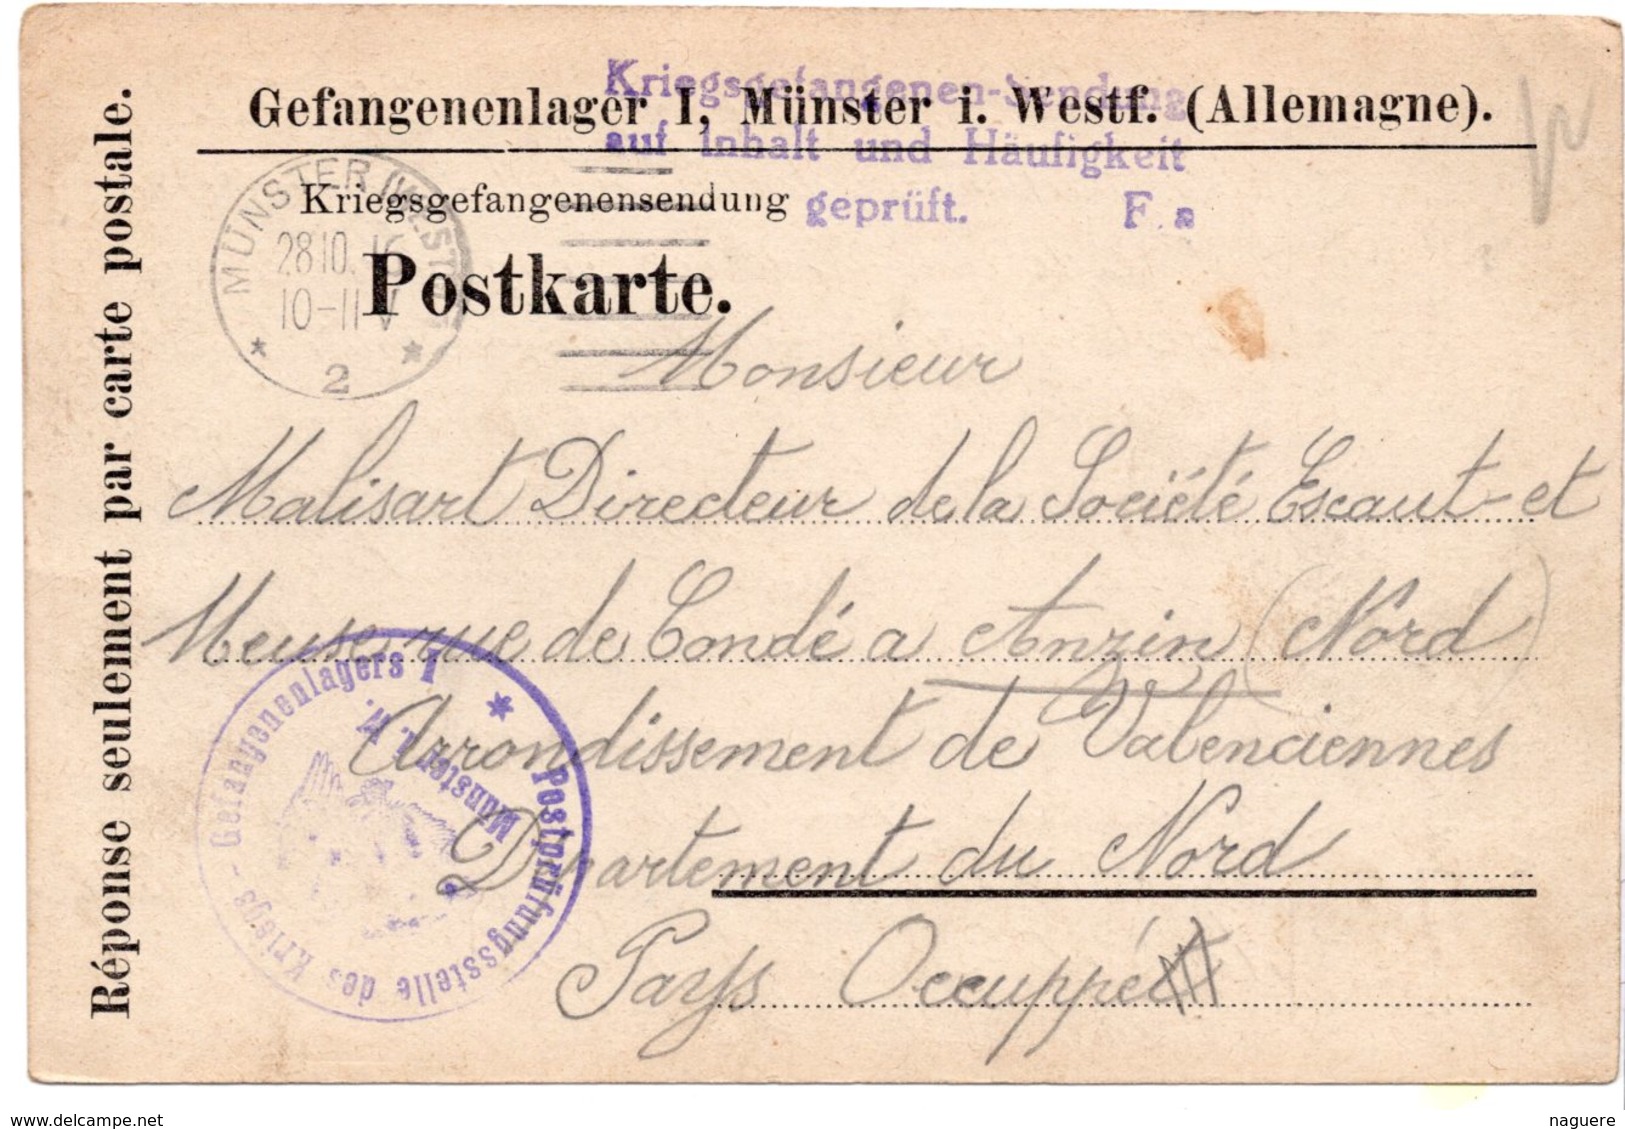 Gefangenenlager I, Münster i. Westf. (Allemagne).
Kriegsgefangenen-Sendung
auf Inhalt und Häufigkeit
geprüft. F. a
Kriegsgefangenensendung
Postkarte.
MÜNSTER (WESTF.)
28.10.16
10-11 V
* 2 *
Réponse seulement par carte postale.
Monsieur
Malisart Directeur de la Société Escaut-et
Meuse rue de Condé a Anzin (Nord)
Arrondissement de Valenciennes
Département du Nord
Pays Occuppé
Postprüfungsstelle des Kriegs-Gefangenenlagers I *
Münster i. W.
www.delcampe.net
naguere